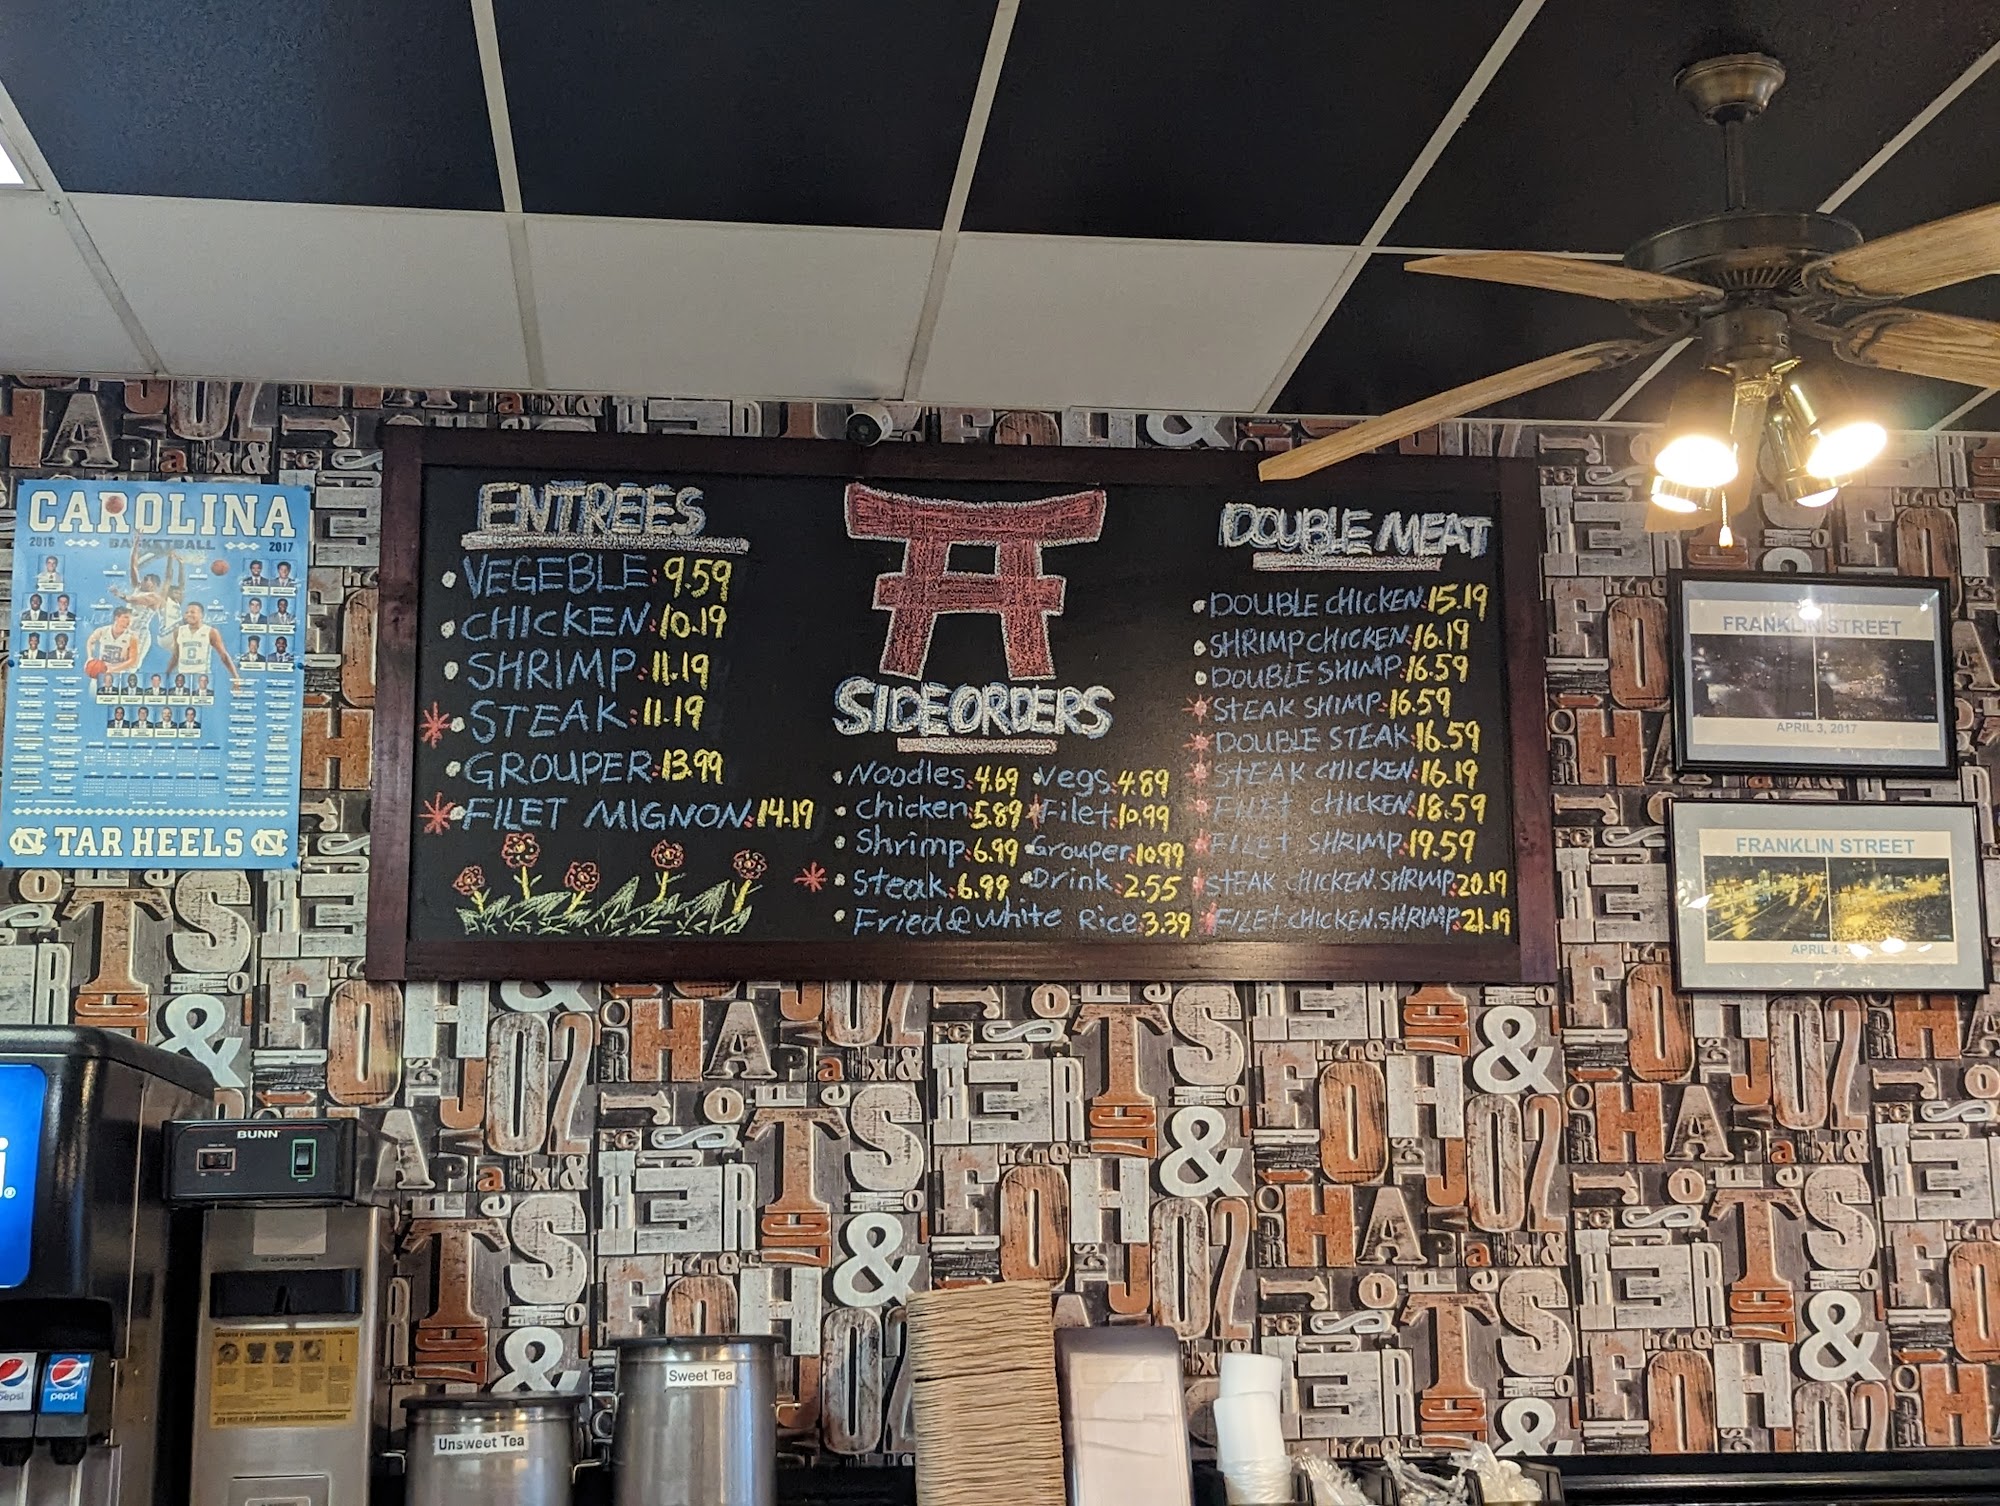 CAROLINA
2016 BASKETBALL 2017
TAR HEELS
ENTREES
VEGEBLE: 9.59
CHICKEN: 10.19
SHRIMP: 11.19
STEAK: 11.19
GROUPER: 13.99
FILET MIGNON: 14.19
SIDE ORDERS
Noodles: 4.69 Vegs: 4.89
Chicken: 5.89 Filet: 10.99
Shrimp: 6.99 Grouper: 10.99
Steak: 6.99 Drink: 2.55
Fried & White Rice: 3.39
DOUBLE MEAT
DOUBLE CHICKEN: 15.19
SHRIMP CHICKEN: 16.19
DOUBLE SHIMP: 16.59
STEAK SHIMP: 16.59
DOUBLE STEAK: 16.59
STEAK CHICKEN: 16.19
FILET CHICKEN: 18.59
FILET SHRIMP: 19.59
STEAK CHICKEN. SHRIMP: 20.19
FILET CHICKEN. SHRIMP: 21.19
FRANKLIN STREET
APRIL 3, 2017
FRANKLIN STREET
APRIL 4,
BUNN
pepsi
pepsi
Unsweet Tea
Sweet Tea